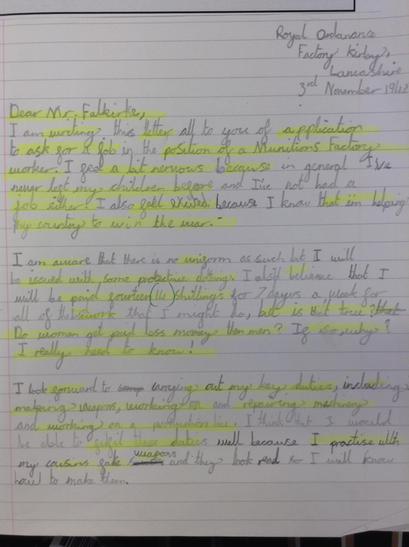 Royal Ordanance
Factory Kirby,
Lancashire
3rd November
Dear Mr. Falkirke,
I am writing this letter all to you of application
to ask for a job in the position of a Munitions Factory
worker. I feel a bit nervous because in general I've
never left my children before and I've not had a
job either. I also feel because I know that im helping
my country to win the war.
I am aware that there is no uniform as such but I will
be issued with some protective clothing. I also believe that I
will be paid fourteen shillings for 7 days a week for
all of the work that I might do, but is that true
Do women get paid less money than men? If so, why?
I really need to know!
I look forward to carrying out my key duties, including
making weapons, working on and repairing machinery
and working on a production line. I think that I would
be able to fulfil these duties well because I practise with
my cousins fake weapons and they look real so I will know
how to make them.